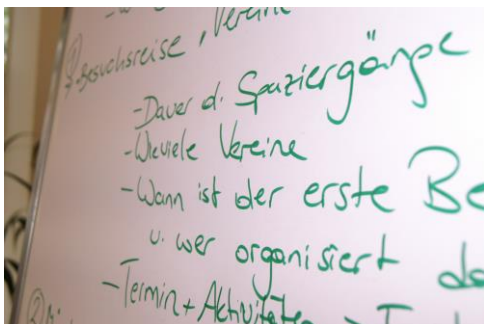 ① Besuchsreise, Vereine
- Dauer d. Spaziergänge
- Wieviele Vereine
- Wann ist der erste Be
u. wer organisiert de
- Termin + Aktivitäten
②